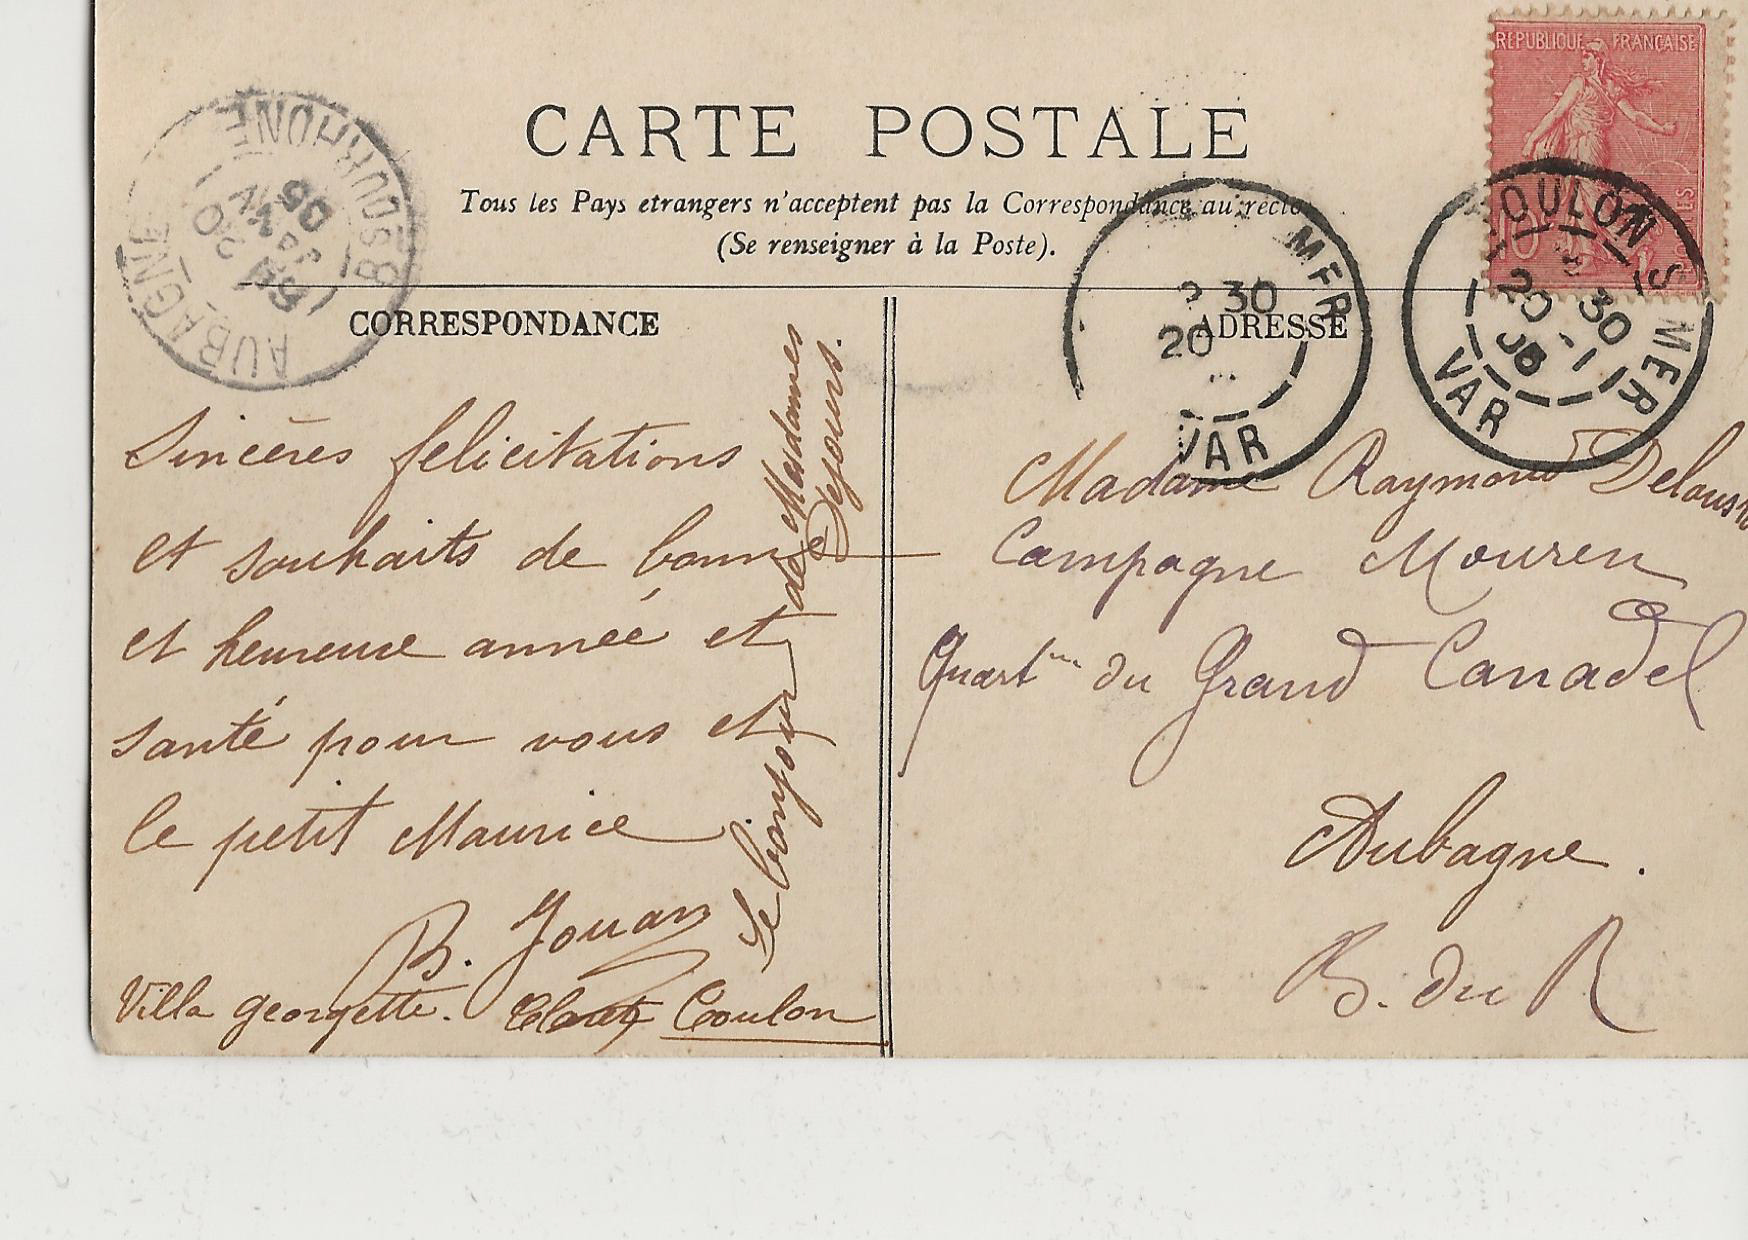 CARTE POSTALE
Tous les Pays etrangers n'acceptent pas la Correspondance au recto
(Se renseigner à la Poste).
REPUBLIQUE FRANÇAISE
10
TOULON S MER
30
20 1
VAR
MER
30
20
VAR
AUBAGNE
BSDURHONE
20
05
CORRESPONDANCE
Sincères felicitations
et souhaits de bonne
et heureuse année et
santé pour vous et
le petit Maurice
B. Jouan
Villa georgette. Toulon
Le bonjour de Mesdames
Dejours.
ADRESSE
Madame Raymond
Campagne Mouren
Quart du Grand Canadel
Aubagne.
B. du R